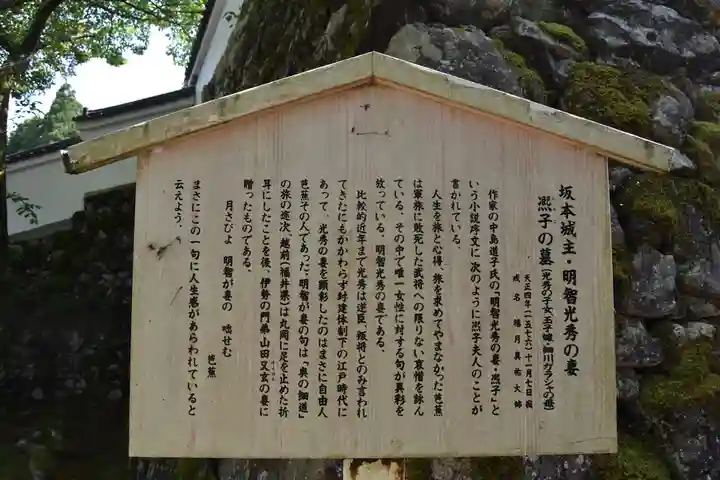 坂本城主・明智光秀の妻
凞子の墓(光秀の子女、玉子嬢・細川ガラシャの母)
天正四年(一五七六)十一月七日歿
戒名 福月真祐大姉
作家の中島道子氏の「明智光秀の妻・凞子」と
いう小説序文に次のように凞子夫人のことが
書かれている。
人生を旅と心得、旅を求めてやまなかった芭蕉
は軍旅に敗死した武将への限りない哀憎を詠ん
ている、その中で唯一女性に対する句が異彩を
放っている。明智光秀の妻である。
比較的近年まで光秀は逆臣、叛将とのみ言われ
てきたにもかかわらず封建体制下の江戸時代に
あって、光秀の妻を顕彰したのはまさに自由人
芭蕉その人であった。明智が妻の句は「奥の細道」
の旅の途次、越前(福井県)は丸岡に足を止めた折
耳にしたことを後、伊勢の門弟・山田又玄の妻に
贈ったものである。
月さびよ 明智が妻の 咄せむ
芭蕉
まさにこの一句に人生感があらわれていると
云えよう。